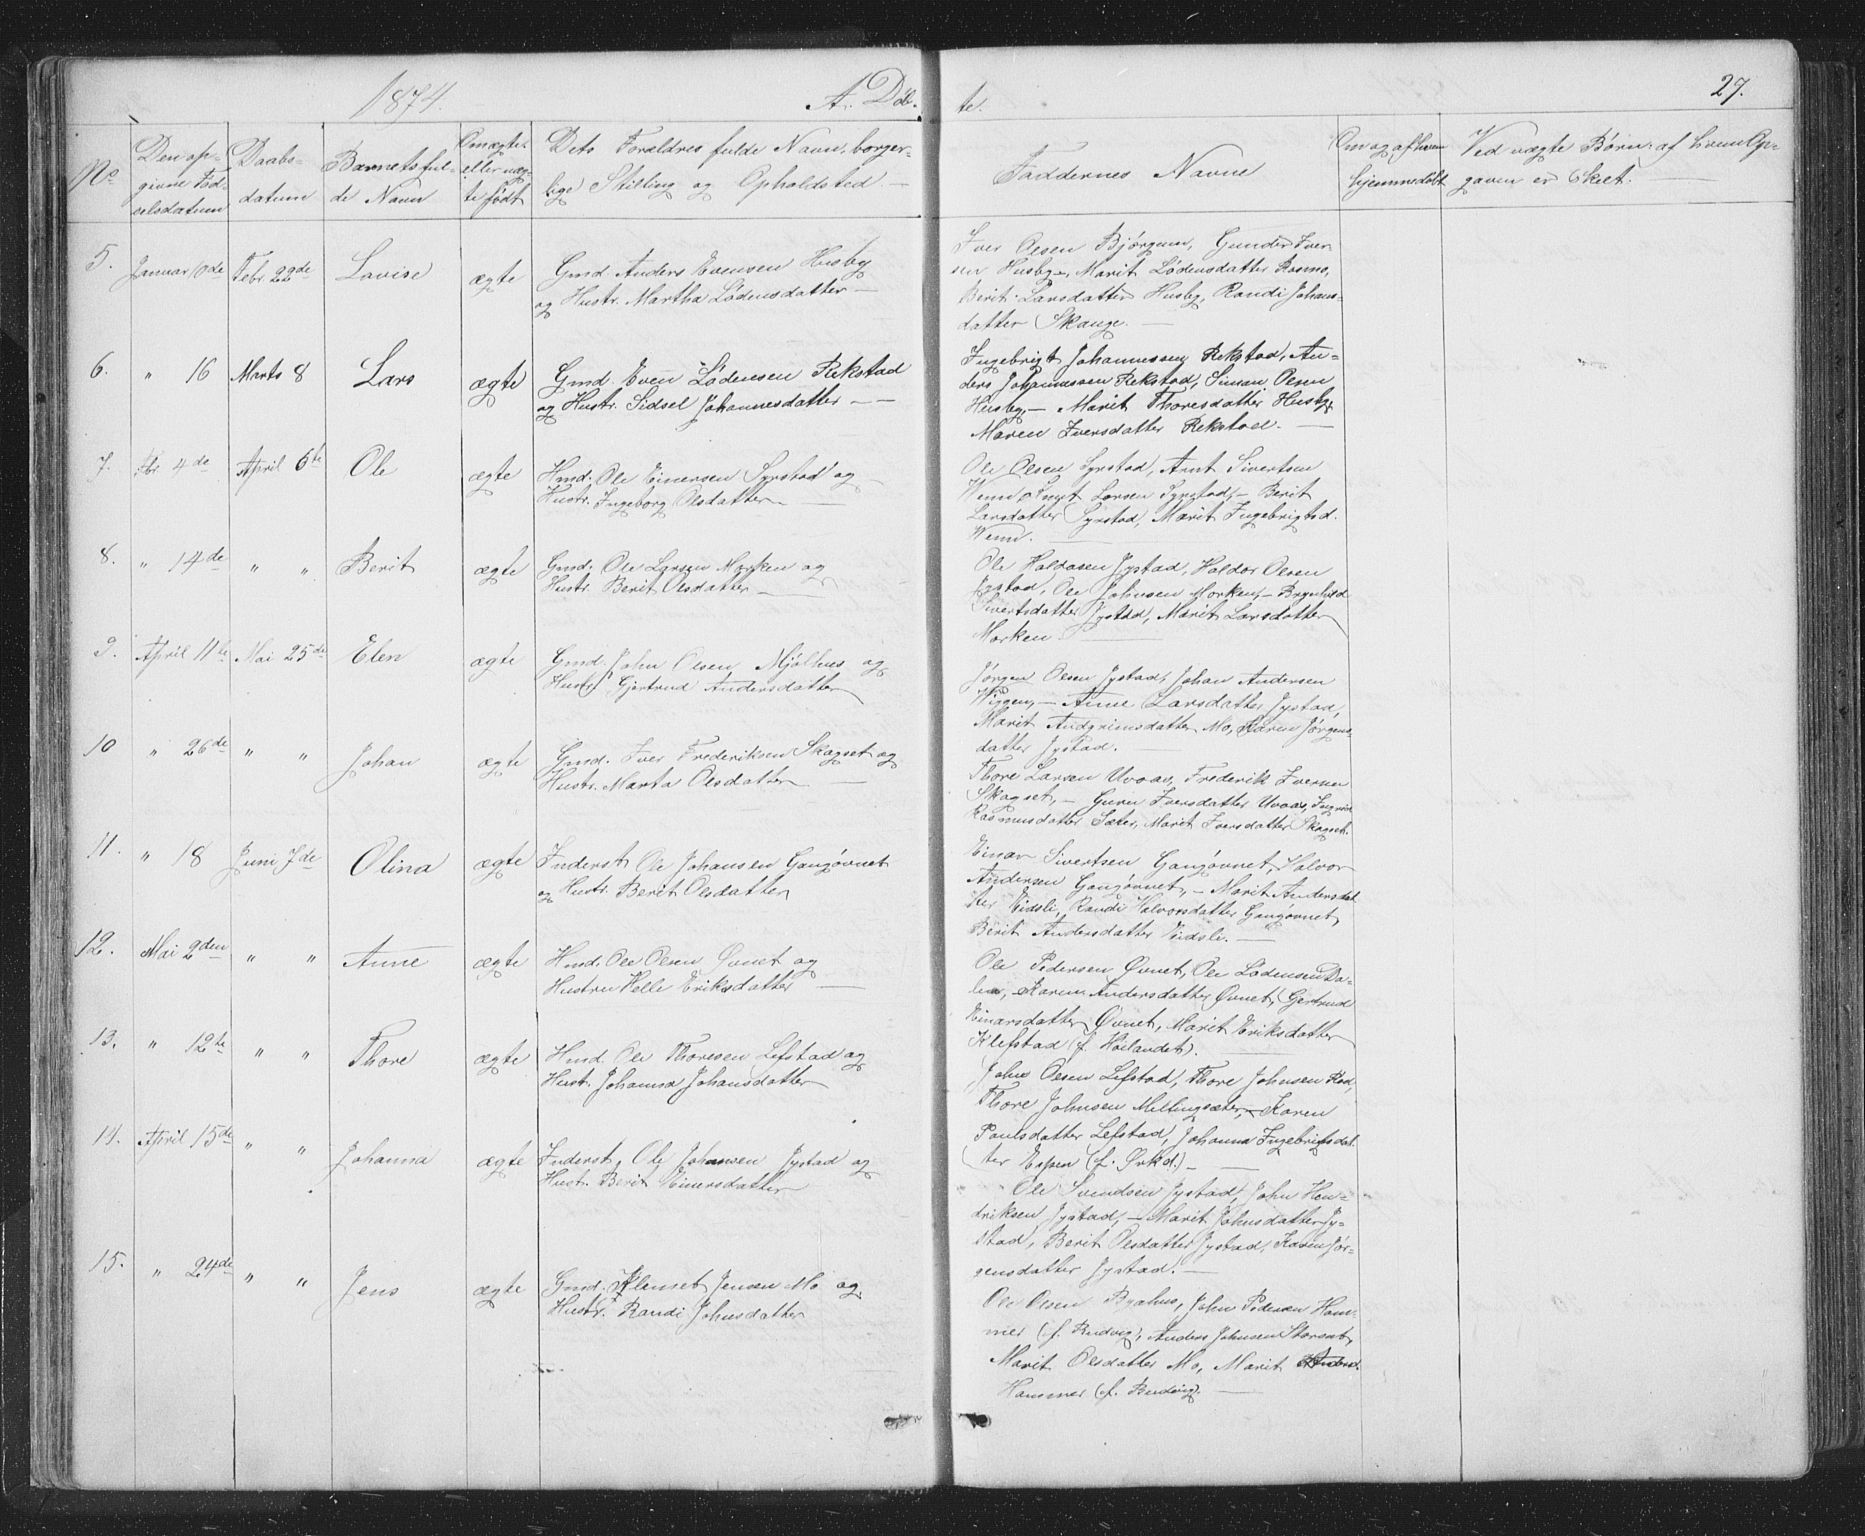 1874.
A. Döb-
te.
27.
No
Den op-
givne Fød-
selsdatum
Daabs-
datum
Barnets ful-
de Navn
Om ægte
eller uæg-
te født
Dets Forældres fulde Navn, borger-
lige Stilling og Opholdsted.
Faddernes Navne
Om og af hvem
hjemmedøbt
Ved uægte Børn: af hvem Op-
gaven er skeet.
5.
Januar 10de
Febr. 22de
Lovise
ægte
Gmd. Anders Evensen Husby
og Hustr. Martha Lødensdatter
Iver Olsen Bjørgum, Gunder Iver-
sen Husby, Marit Lødensdatter Rosmo,
Berit Larsdatter Husby, Randi Johans-
datter Skauge.
6.
" 16
Marts 8
Lars
ægte
Gmd. Even Lødensen Rekstad
og Hustr. Sidsel Johannesdatter
Ingebrigt Johannessen Rekstad, An-
ders Johannessen Rekstad, Simen Olsen
Husby, Marit Thoresdatter Husby,
Maren Iversdatter Rekstad.
7.
Fbr. 4de
April 6te
Ole
ægte
Hmd. Ole Einersen Syrstad og
Hustr. Ingeborg Olsdatter
Ole Olsen Syrstad, Arnt Sivertsen
Wenn, Larsen Syrstad, Berit
Larsdatter Syrstad, Marit Ingebrigtsd.
Wenn.
8.
" 14de
" "
Berit
ægte
Gmd. Ole Larsen Morken og
Hustr. Berit Olsdatter
Ole Haldosen Jystad, Haldor Olsen
Jystad, Ole Johnsen Morken, Brynhild
Sivertsdatter Jystad, Marit Larsdatter
Morken
9.
April 11te
Mai 25de
Elen
ægte
Gmd. John Olsen Mjølhus og
Hustr. Gjertrud Andersdatter
Jørgen Olsen Jystad, Johan Andersen
Wiggen, Anne Larsdatter Jystad,
Marit Andgrimsdatter Mo, Karen Jørgens-
datter Jystad.
10
" 26de
" "
Johan
ægte
Gmd. Iver Frederiksen Skagset og
Hustr. Marta Olsdatter
Thore Larsen Uvaas, Frederik Iversen
Skagset, Guru Iversdatter Uvaas, Ingrid
Rasmusdatter Sæter, Marit Iversdatter Skagset.
11.
" 18
Juni 7de
Olina
ægte
Inderst Ole Johansen Gangøvnet
og Hustr. Berit Olsdatter
Einar Sivertsen Gangøvnet, Halvor
Andersen Gangøvnet, Marit Andersdat-
ter Eidsli, Randi Halvorsdatter Gangøvnet,
Berit Andersdatter Eidsli.
12.
Mai 2den
" "
Anne
ægte
Hmd. Ole Olsen Øvnet og
Hustru Pelle Eriksdatter
Ole Pedersen Øvnet, Ole Lødensen Da-
len, Karen Andersdatter Øvnet, Gertrud
Einarsdatter Øvnet, Marit Eriksdatter
Klefstad (f. Hølandet).
13.
" 12te
" "
Thore
ægte
Hmd. Ole Thoresen Lefstad og
Hustr. Johanna Johansdatter
John Olsen Lefstad, Thore Johnsen Rød,
Thore Johnsen Meltingsæter, Karen
Paulsdatter Lefstad, Johanna Ingebrigtsdat-
ter Espen (f. Ørkd.)
14.
April 15de
" "
Johanna
ægte
Inderst Ole Johansen Jystad og
Hustr. Berit Einersdatter
Ole Svendsen Jystad, John Hen-
driksen Jystad, Marit Johnsdatter Jy-
stad, Berit Olsdatter Jystad, Karen Jør-
gensdatter Jystad.
15.
" 24de
" "
Jens
ægte
Gmd. Klemet Jensen Mo og
Hustr. Randi Johnsdatter
Ole Olsen Byahus, John Pedersen Ham-
mer (f. Budvig), Anders Johnsen
Marit Olsdatter Mo, Marit Andersd.
Hammer (f. Budvig).